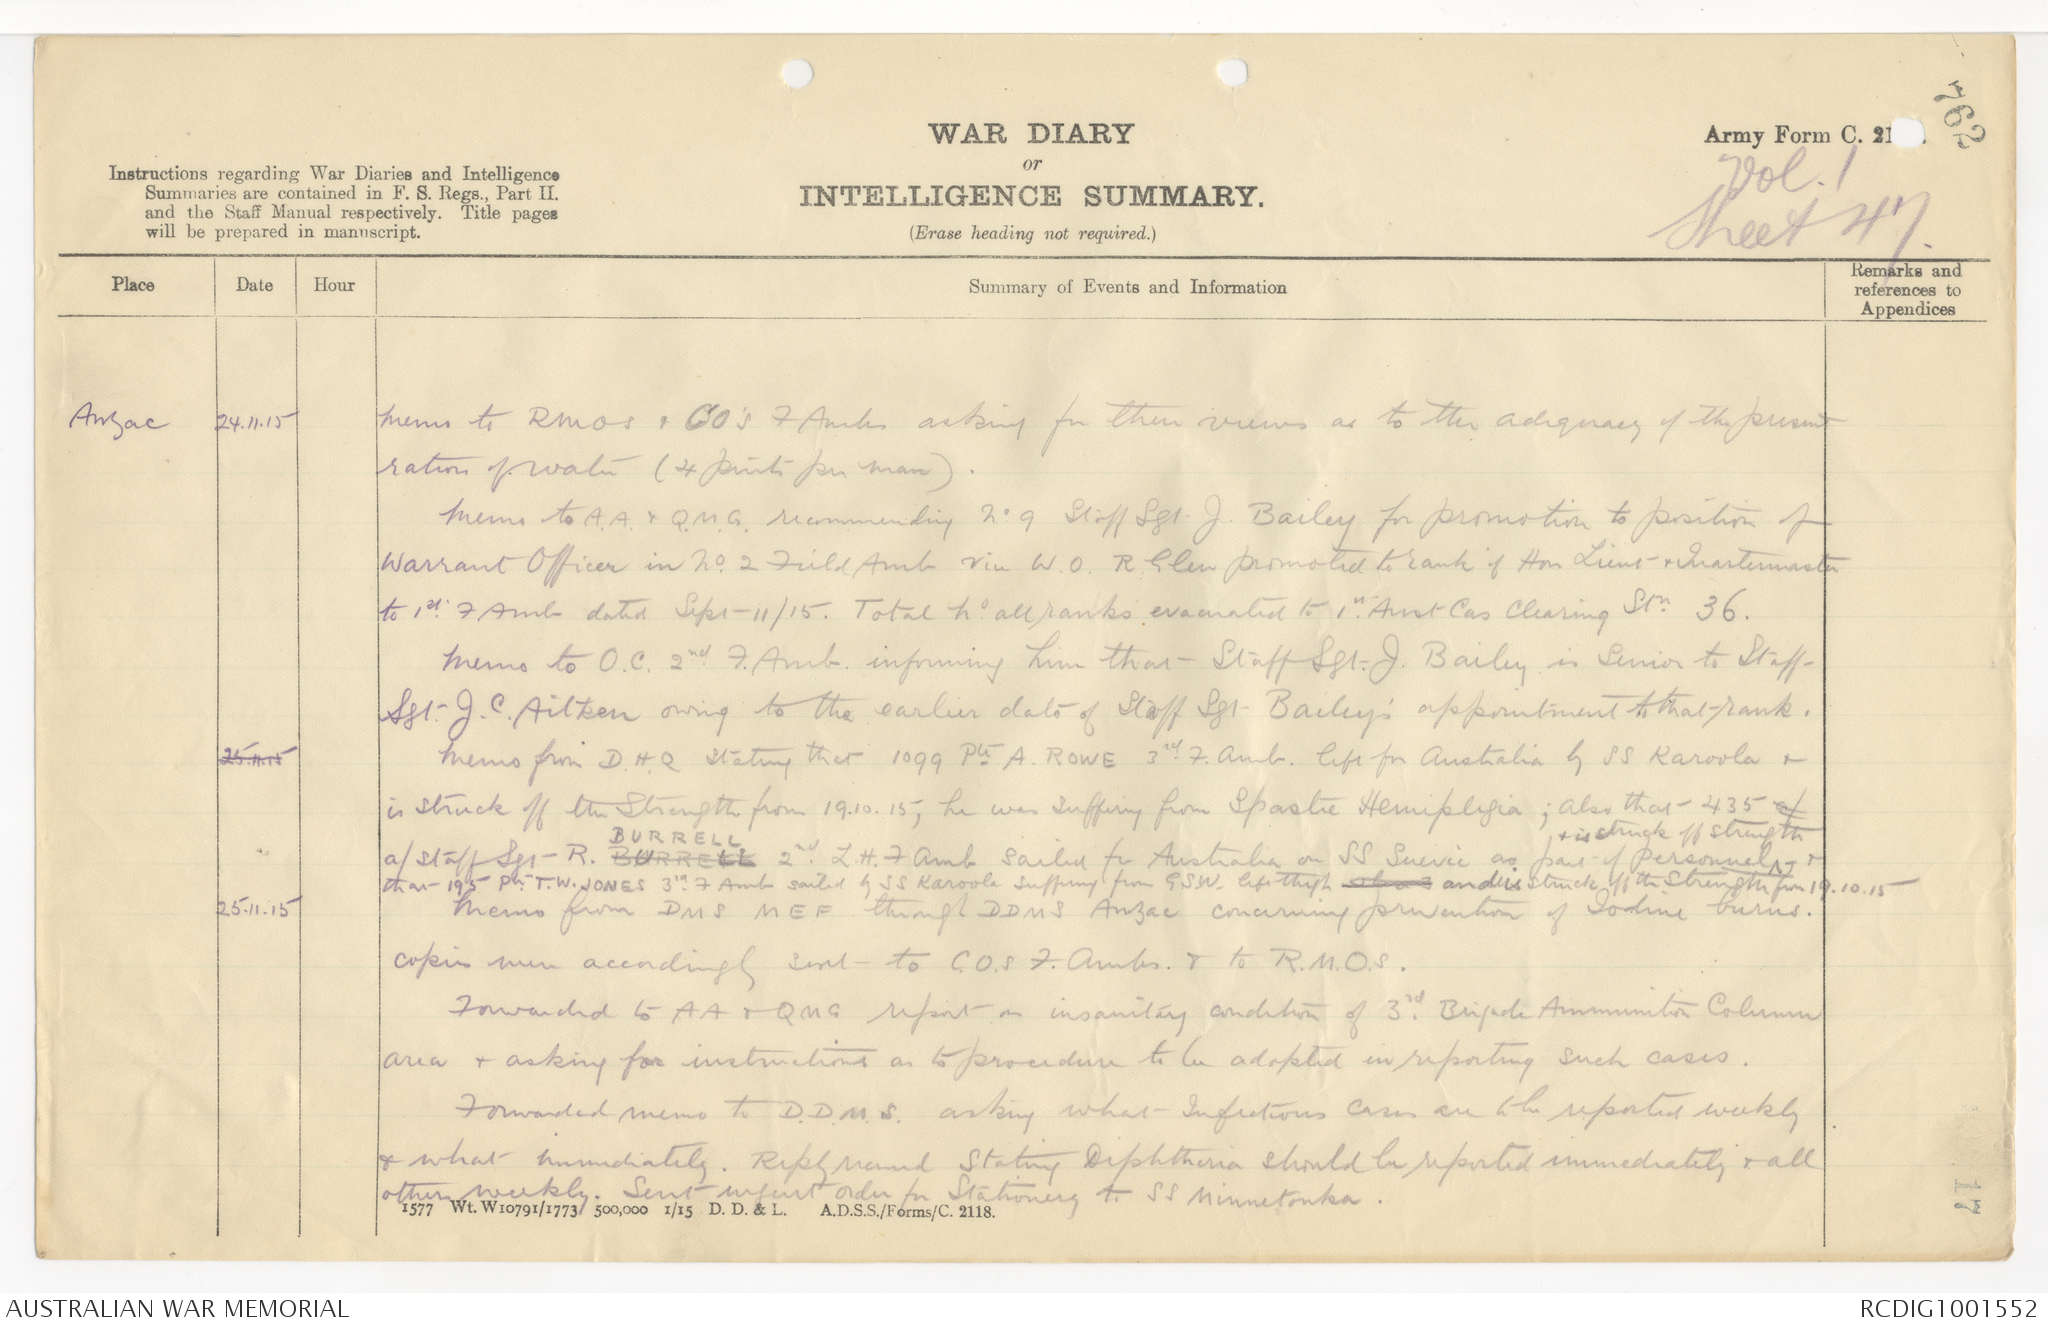 762
WAR DIARY
or
INTELLIGENCE SUMMARY.
(Erase heading not required.)
Army Form C. 21
Vol. 1
Sheet 47.
Instructions regarding War Diaries and Intelligence
Summaries are contained in F. S. Regs., Part II.
and the Staff Manual respectively. Title pages
will be prepared in manuscript.
Place
Date
Hour
Summary of Events and Information
Remarks and
references to
Appendices
Anzac 24.11.15 Memo to RMOs & CO's F Ambs asking for their views as to the adequacy of the present
ration of water (4 pints per man).
Memo to A.A. & Q.M.G. recommending No 9 Staff Sgt J. Bailey for promotion to position of
Warrant Officer in No. 2 Field Amb vice W.O. R Glen promoted to rank of Hon Lieut & Quartermaster
to 1st F Amb dated Sept 11/15. Total no all ranks evacuated to 1st Aust Cas Clearing Stn 36.
Memo to O.C. 2nd F. Amb. informing him that Staff Sgt J. Bailey is Senior to Staff
Sgt. J. C. Aitken owing to the earlier date of Staff Sgt Bailey's appointment to that rank.
25.11.15 Memo from D.H.Q stating that 1099 Pte A. ROWE 3rd F. Amb. left for Australia by SS Karoola &
is struck off the Strength from 19.10.15, he was suffering from Spastic Hemiplegia; also that 435
& is struck off strength
BURRELL
a/ Staff Sgt R. BURRELL 2nd L.H.F Amb sailed for Australia on SS Suevic as part of Personnel &
that 195 Pte T.W. JONES 3rd F Amb sailed by SS Karoola suffering from GSW. left thigh and is struck off the Strength from 19.10.15
25.11.15 Memo from DMS MEF through DDMS Anzac concerning prevention of Iodine burns.
copies were accordingly sent to C.O.s F. Ambs. & to R.M.O.s.
Forwarded to AA & QMG report on insanitary condition of 3rd Brigade Ammunition Column
area & asking for instructions as to procedure to be adopted in reporting such cases.
Forwarded memo to D.D.M.S. asking what Infectious cases are to be reported weekly
& what immediately. Reply received stating Diphtheria should be reported immediately & all
others weekly. Sent urgent order for Stationery to SS Minnetonka.
1577 Wt. W10791/1773 500,000 1/15 D. D. & L. A.D.S.S./Forms/C. 2118.
17
AUSTRALIAN WAR MEMORIAL
RCDIG1001552